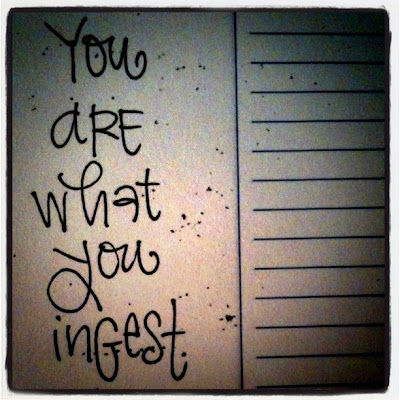 You
aRE
what
you
inGest